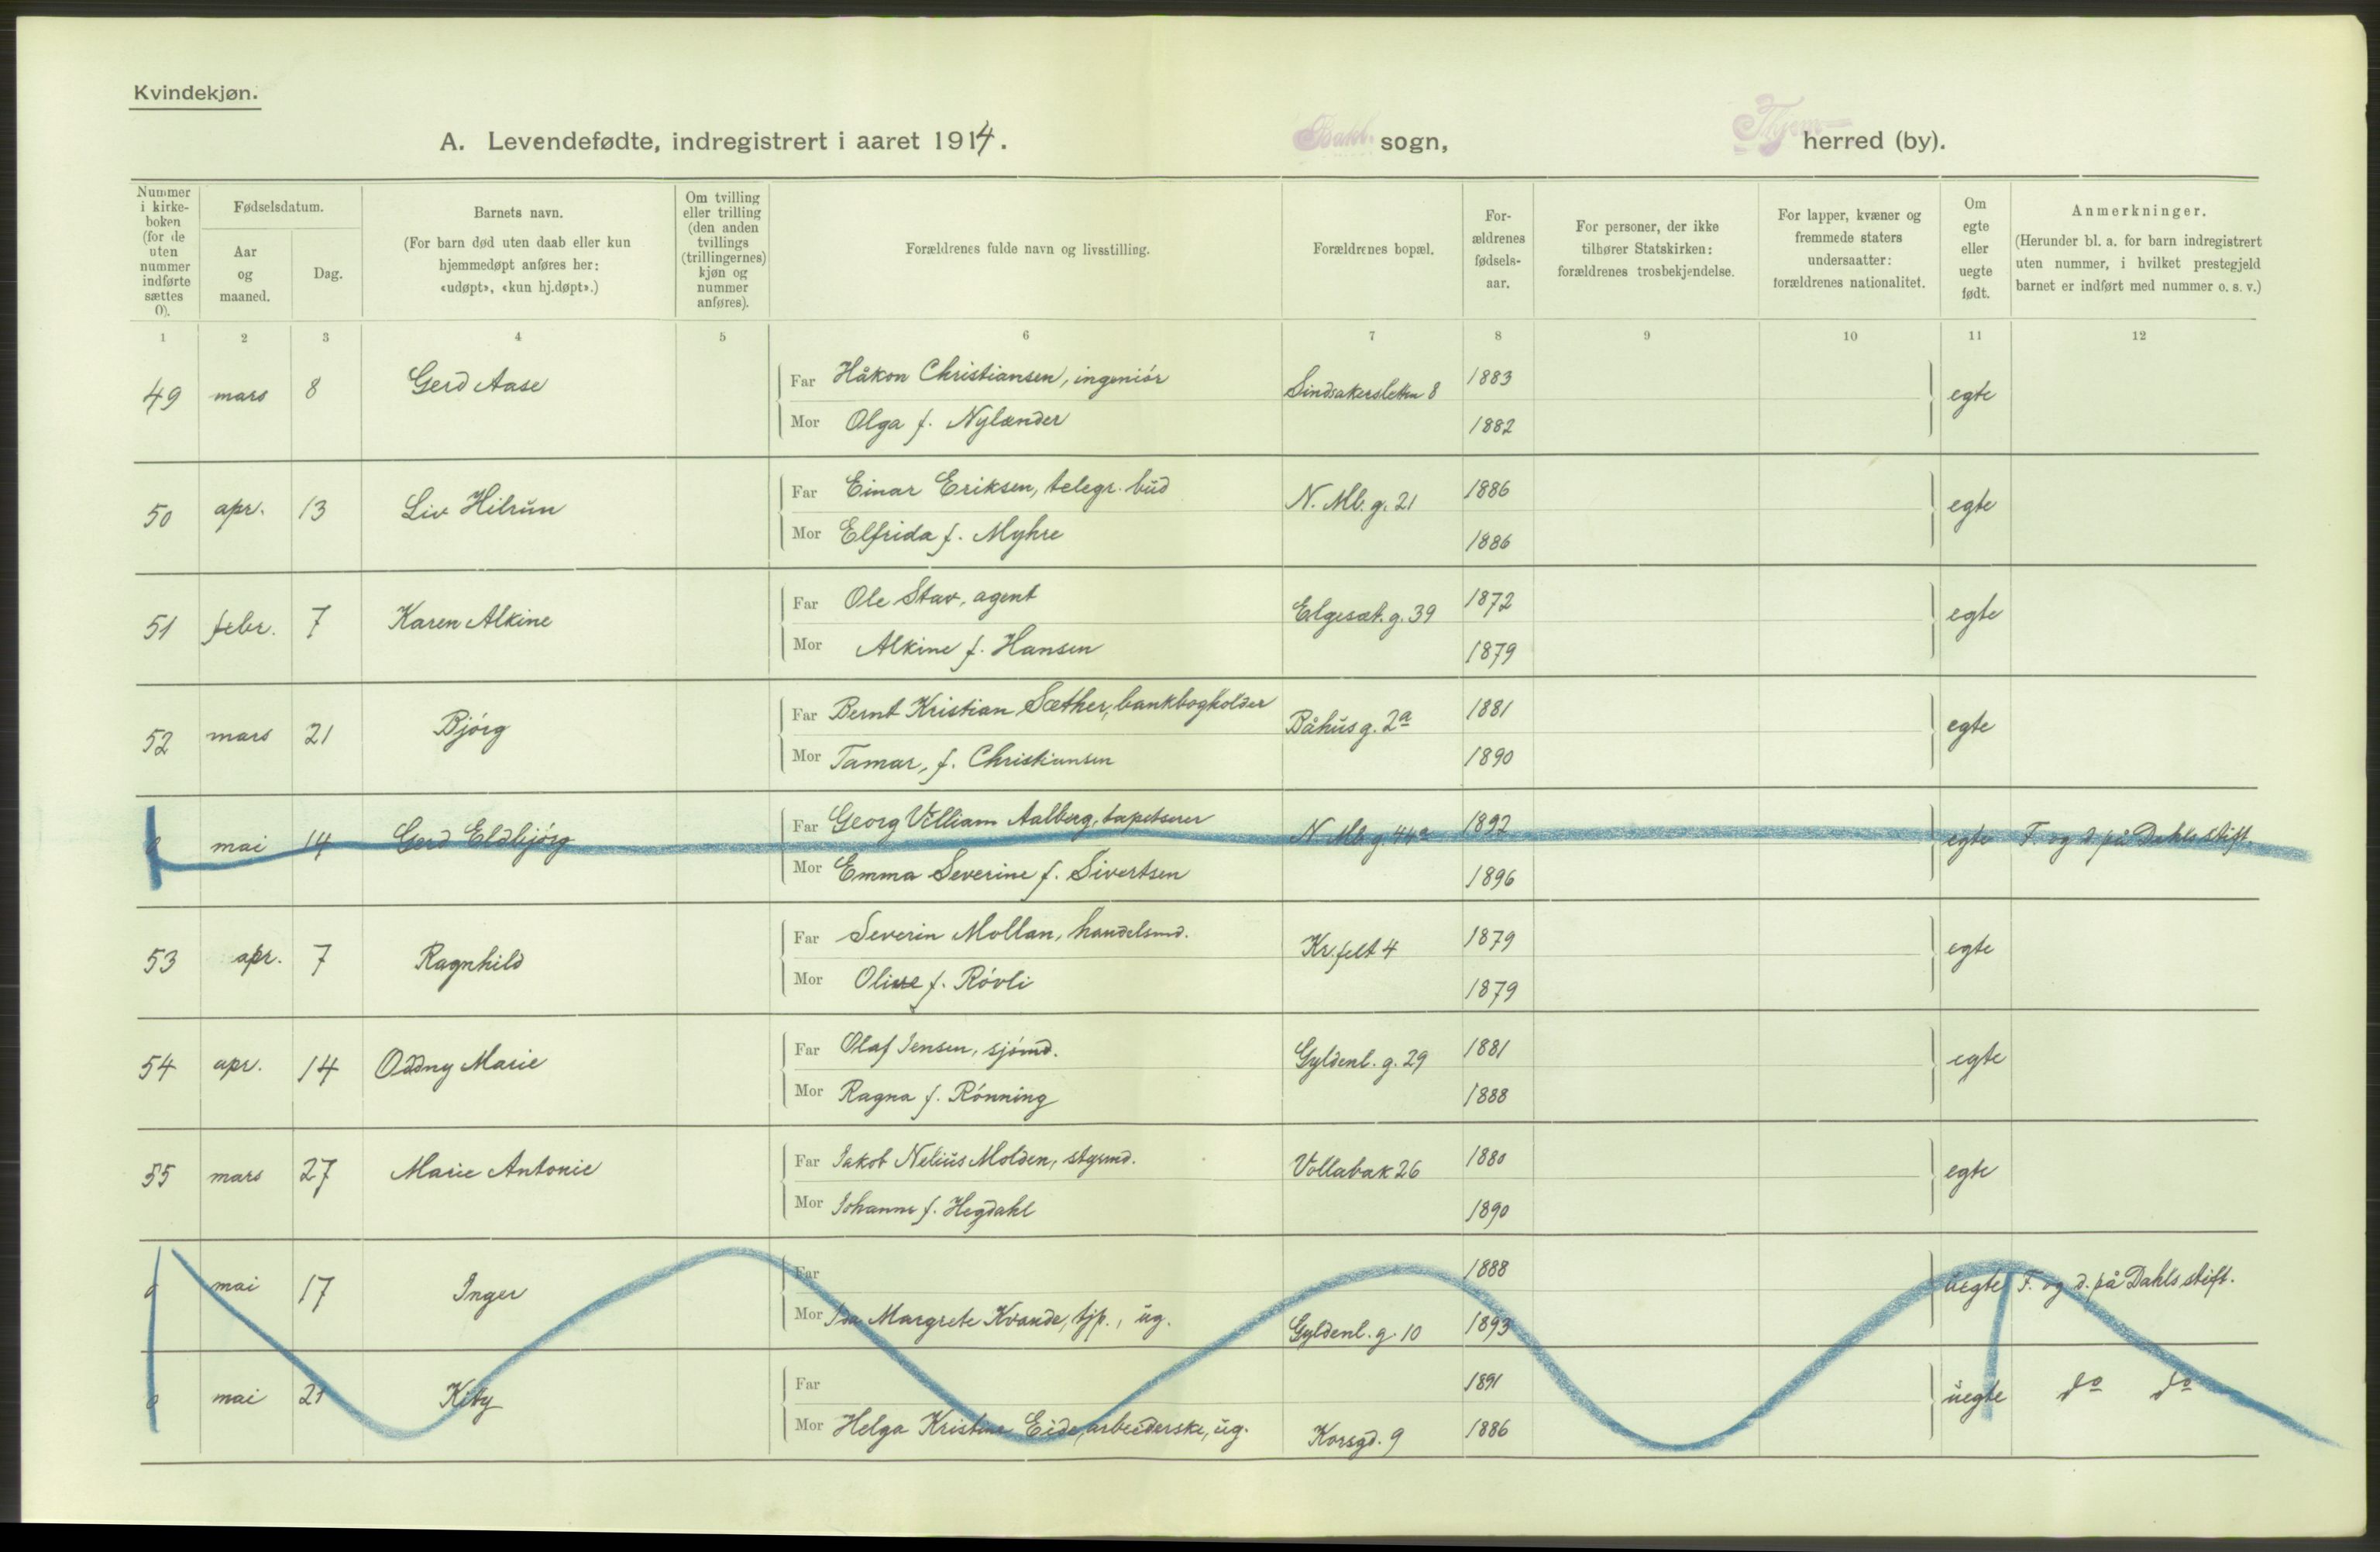 Kvindekjøn.
A. Levendefødte, indregistrert i aaret 1914. Bakl. sogn, Thjem herred (by).
Nummer i kirkeboken (for de uten nummer indførte sættes 0).
Fødselsdatum.
Aar og maaned.
Dag.
Barnets navn.
(For barn død uten daab eller kun hjemmedøpt anføres her: «udøpt», «kun hj.døpt».)
Om tvilling eller trilling (den anden tvillings (trillingernes) kjøn og nummer anføres).
Forældrenes fulde navn og livsstilling.
Forældrenes bopæl.
Forældrenes fødselsaar.
For personer, der ikke tilhører Statskirken: forældrenes trosbekjendelse.
For lapper, kvæner og fremmede staters undersaatter: forældrenes nationalitet.
Om egte eller uegte født.
Anmerkninger.
(Herunder bl. a. for barn indregistrert uten nummer, i hvilket prestegjeld barnet er indført med nummer o. s. v.)
1 2 3 4 5 6 7 8 9 10 11 12
49 mars 8 Gerd Aase Far Håkon Christiansen, ingeniór Sindsakersletten 8 1883 egte
Mor Olga f. Nylænder 1882
50 apr. 13 Liv Hilrun Far Einar Eriksen, telegr. bud N. Mb. g. 21 1886 egte
Mor Elfrida f. Myhre 1886
51 febr. 7 Karen Alkine Far Ole Stav, agent Elgesæt. g. 39 1872 egte
Mor Alkine f. Hansen 1879
52 mars 21 Bjórg Far Bernt Kristian Sæther, bankbogholder Båhus g. 2a 1881 egte
Mor Tamar, f. Christiansen 1890
0 mai 14 Gerd Eldbjórg Far Georg Villiam Aalberg, tapetserer N. Mb. g. 44a 1892 egte F. og d. på Dahls stift.
Mor Emma Severine f. Sivertsen 1896
53 apr. 7 Ragnhild Far Severin Mollan, handelsmd. Kr.felt 4 1879 egte
Mor Oline f. Róvli 1879
54 apr. 14 Oddny Marie Far Olaf Jensen, sjómd. Gyldenl. g. 29 1881 egte
Mor Ragna f. Rónning 1888
55 mars 27 Marie Antonie Far Jakob Nelius Molden, styrmd. Vollabak 26 1880 egte
Mor Johanne f. Hegdahl 1890
0 mai 17 Inger Far 1888 uegte F. og d. på Dahls stift.
Mor Ida Margrete Kvande, tjp., ug. Gyldenl. g. 10 1893
0 mai 21 Kitty Far 1891 uegte do do
Mor Helga Kristine Eide, arbeiderske, ug. Korsgd. 9 1886